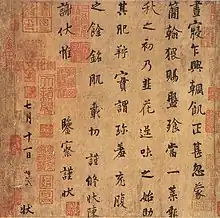 晝寢乍興輖飢正甚忽蒙
簡翰猥賜盤飧當一葉報
秋之初乃韭花逞味之始助
其肥羜實謂珍羞充腹
之餘銘肌載切謹修狀陳
謝伏惟鑒察謹狀
七月十一日狀